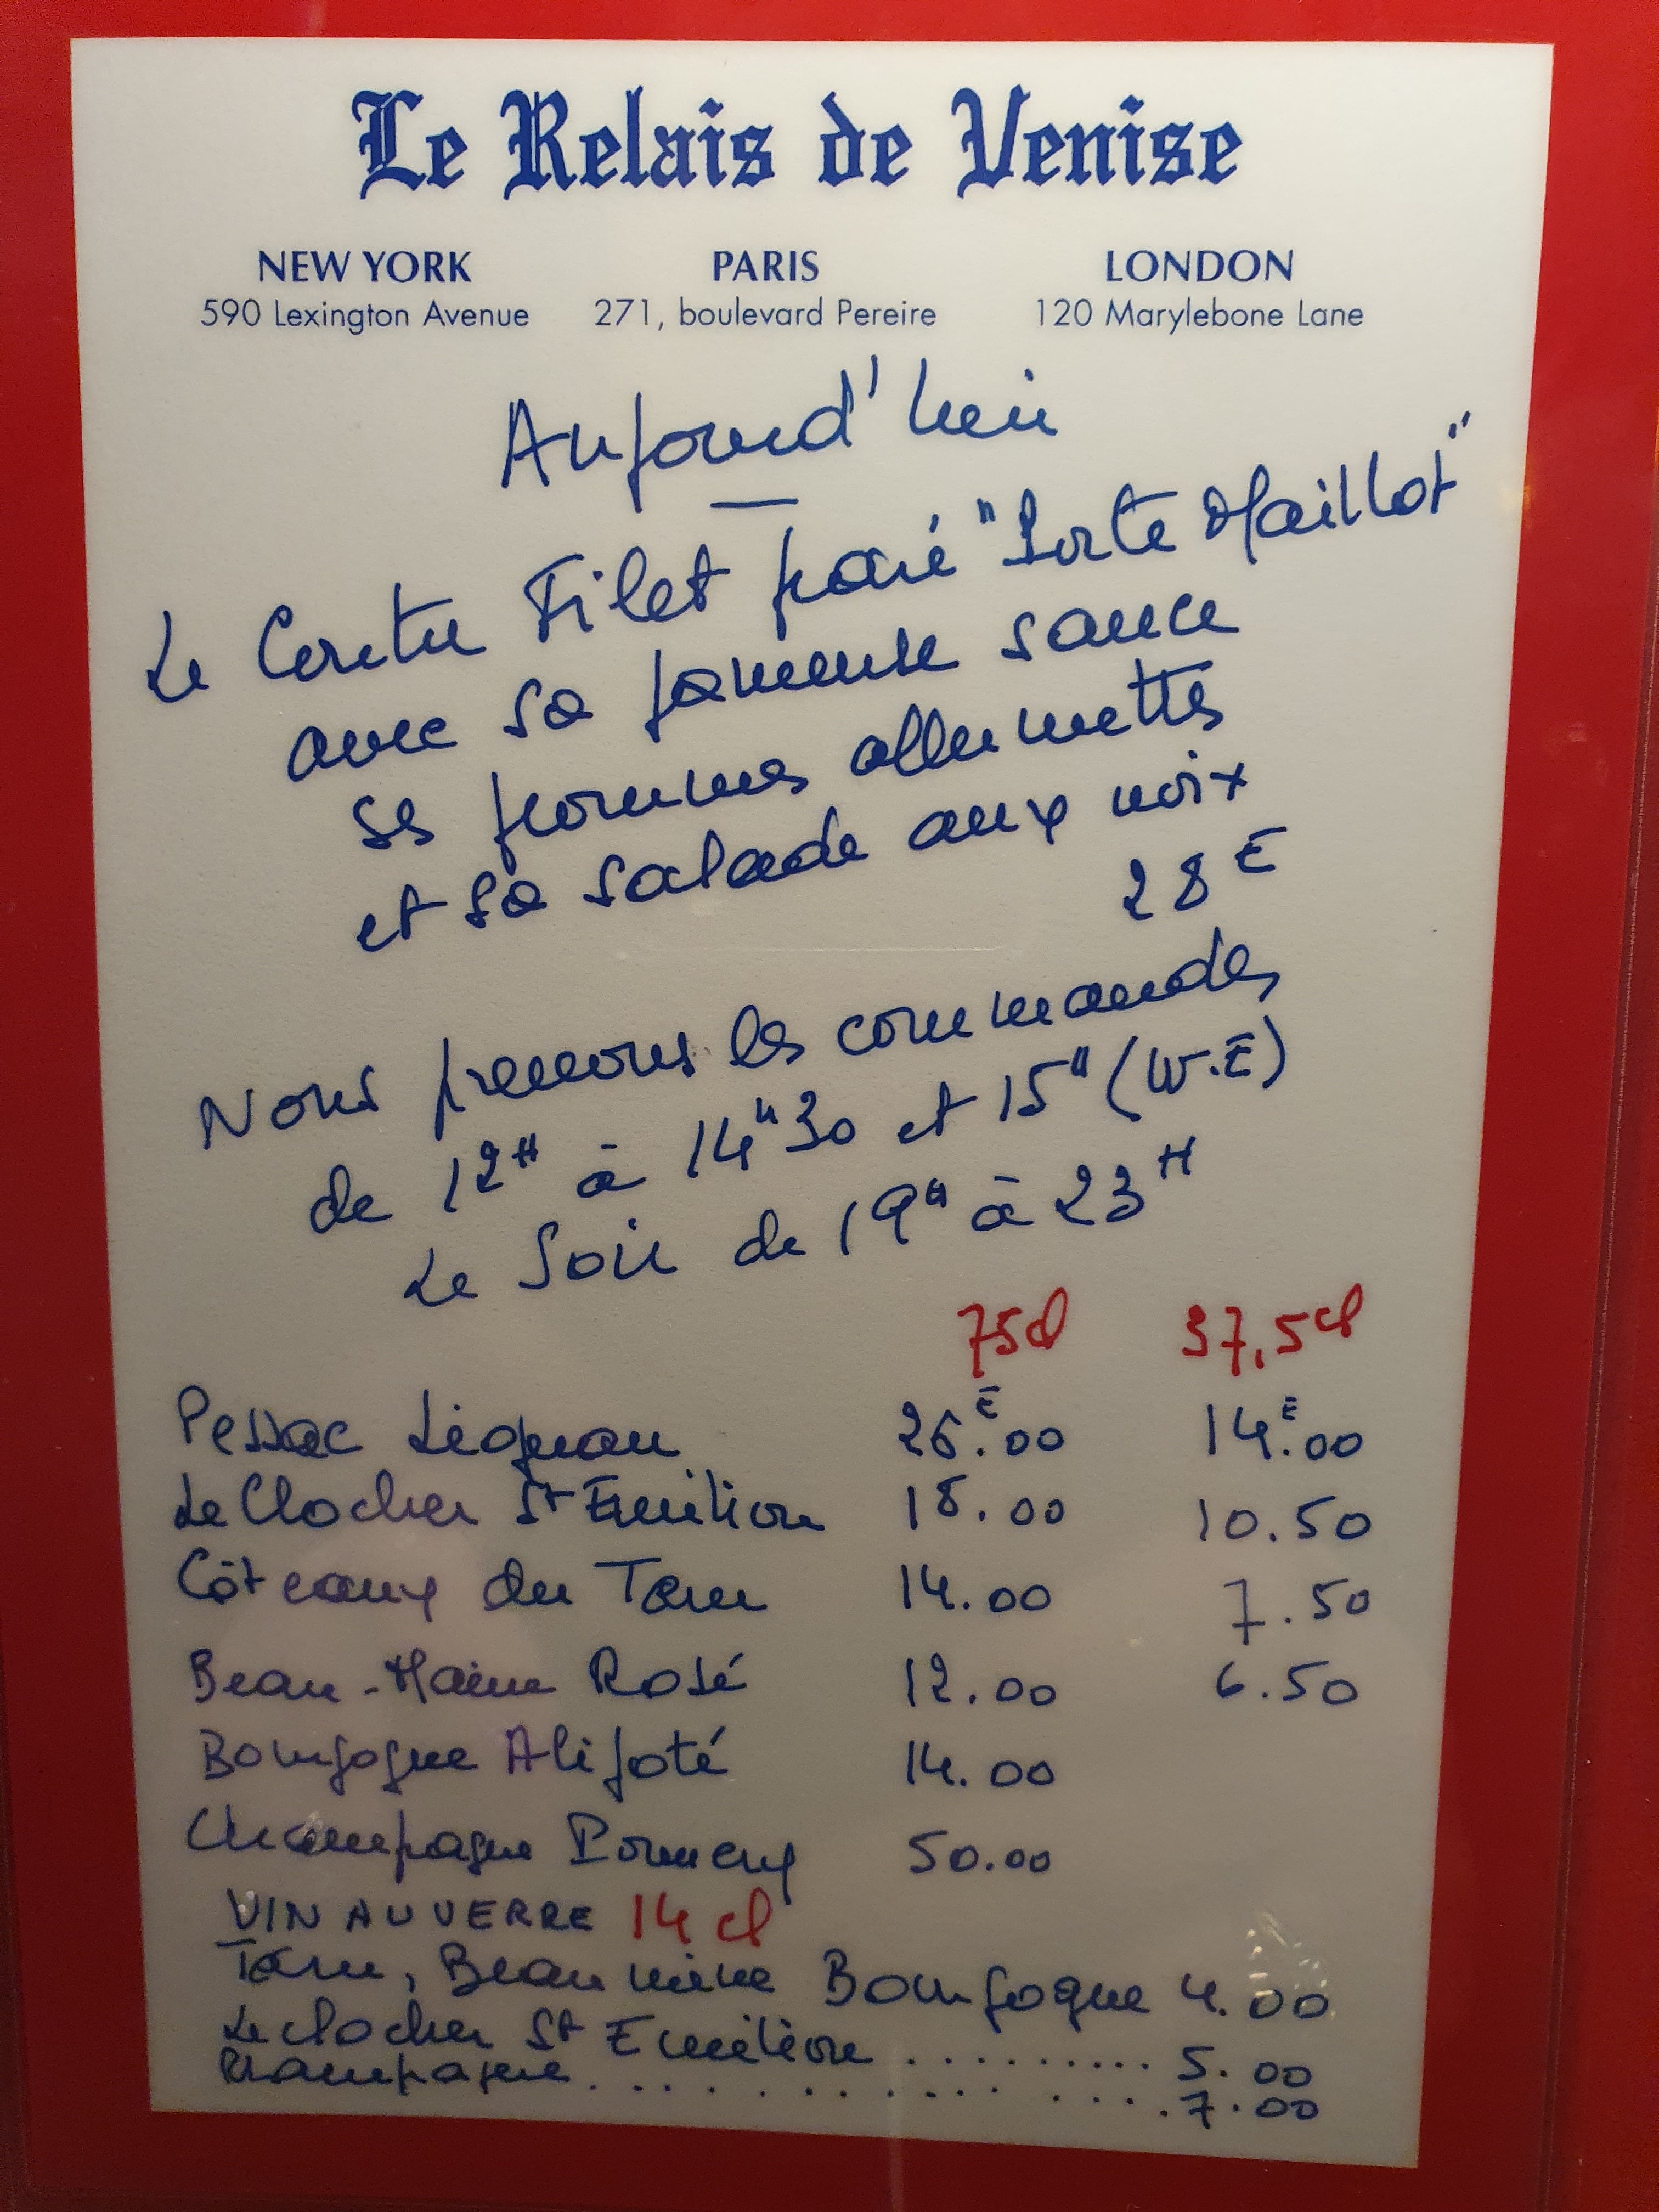 Le Relais de Venise
NEW YORK PARIS LONDON
590 Lexington Avenue 271, boulevard Pereire 120 Marylebone Lane
Aujourd'hui
Le Contre Filet paré "Porte Maillot"
avec sa fameuse sauce
ses pommes allumettes
et sa salade aux noix
28 E
Nous prenons les commandes
de 12H à 14H30 et 15H (W.E)
Le Soir de 19H à 23H
75cl 37,5cl
Pessac Léognan 26.E00 14.E00
Le Clocher St Emilion 18.00 10.50
Côteaux du Tarn 14.00 7.50
Beau-Maine Rosé 12.00 6.50
Bourgogne Aligoté 14.00
Champagne Pommery 50.00
VIN AU VERRE 14 cl
Tarn, Beaumaine Bourgogne 4.00
Le Clocher St Emilion ......... 5.00
Champagne ............ 7.00